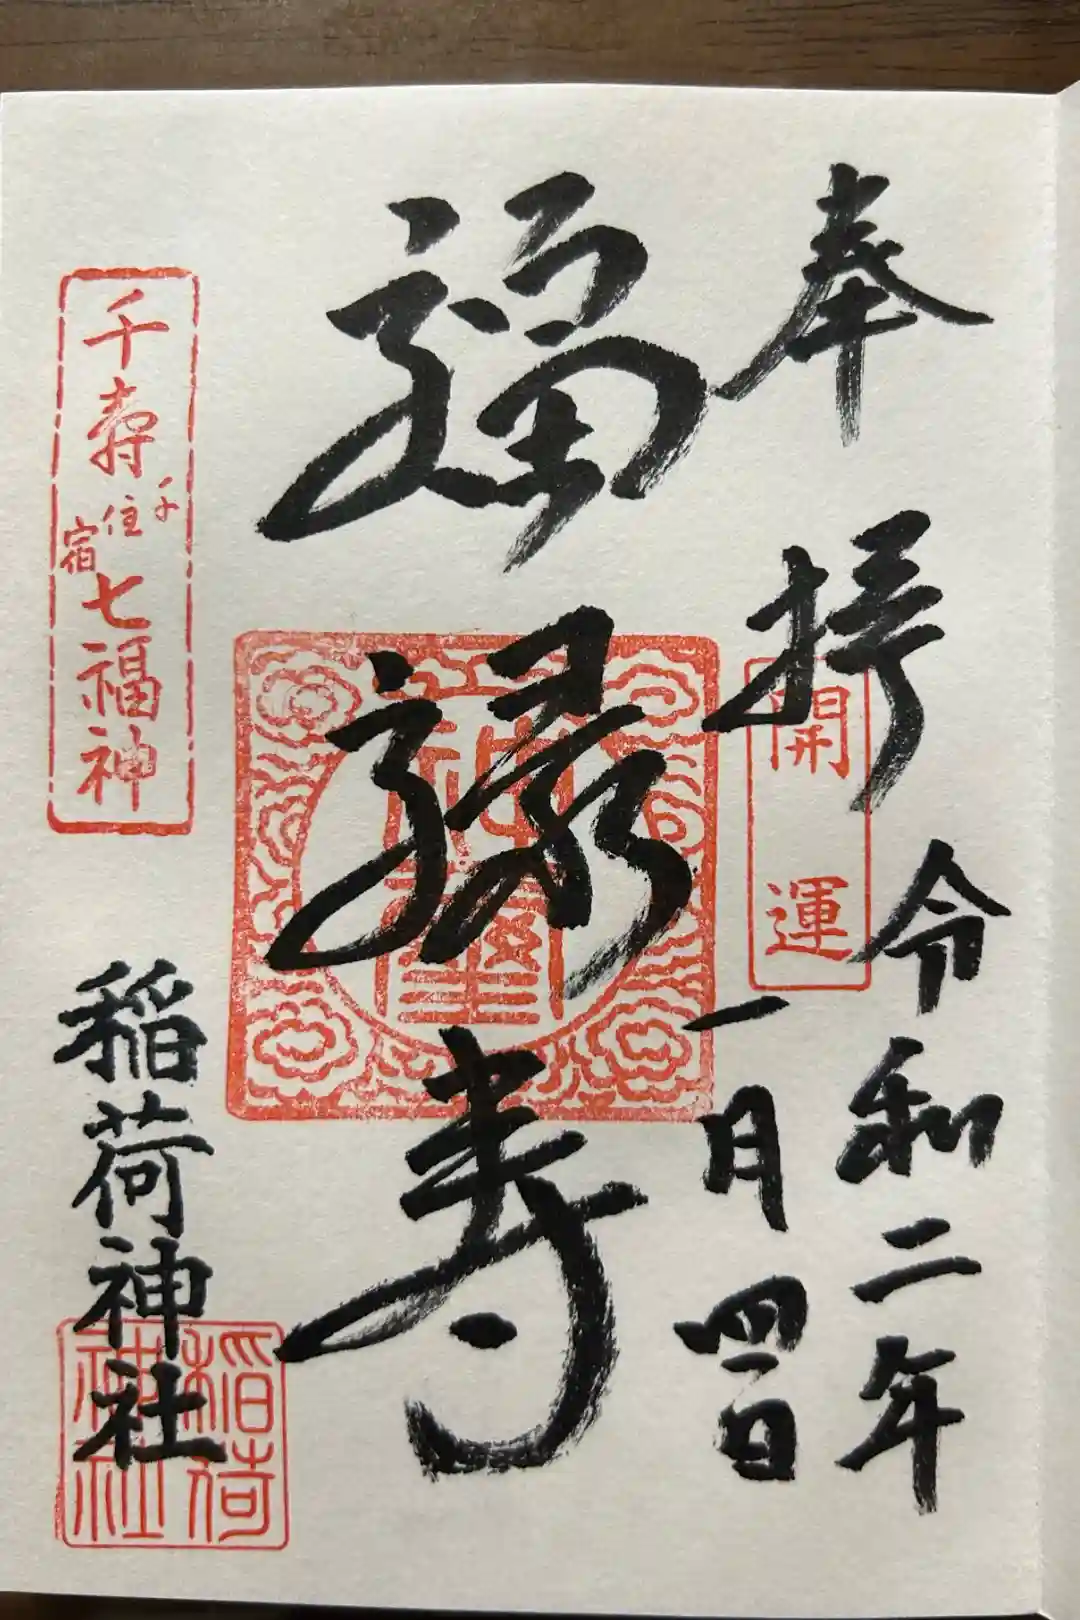 奉拝
開運
令和二年
一月四日
福禄寿
神璽
千寿
千住宿
七福神
稲荷神社
稲荷神社